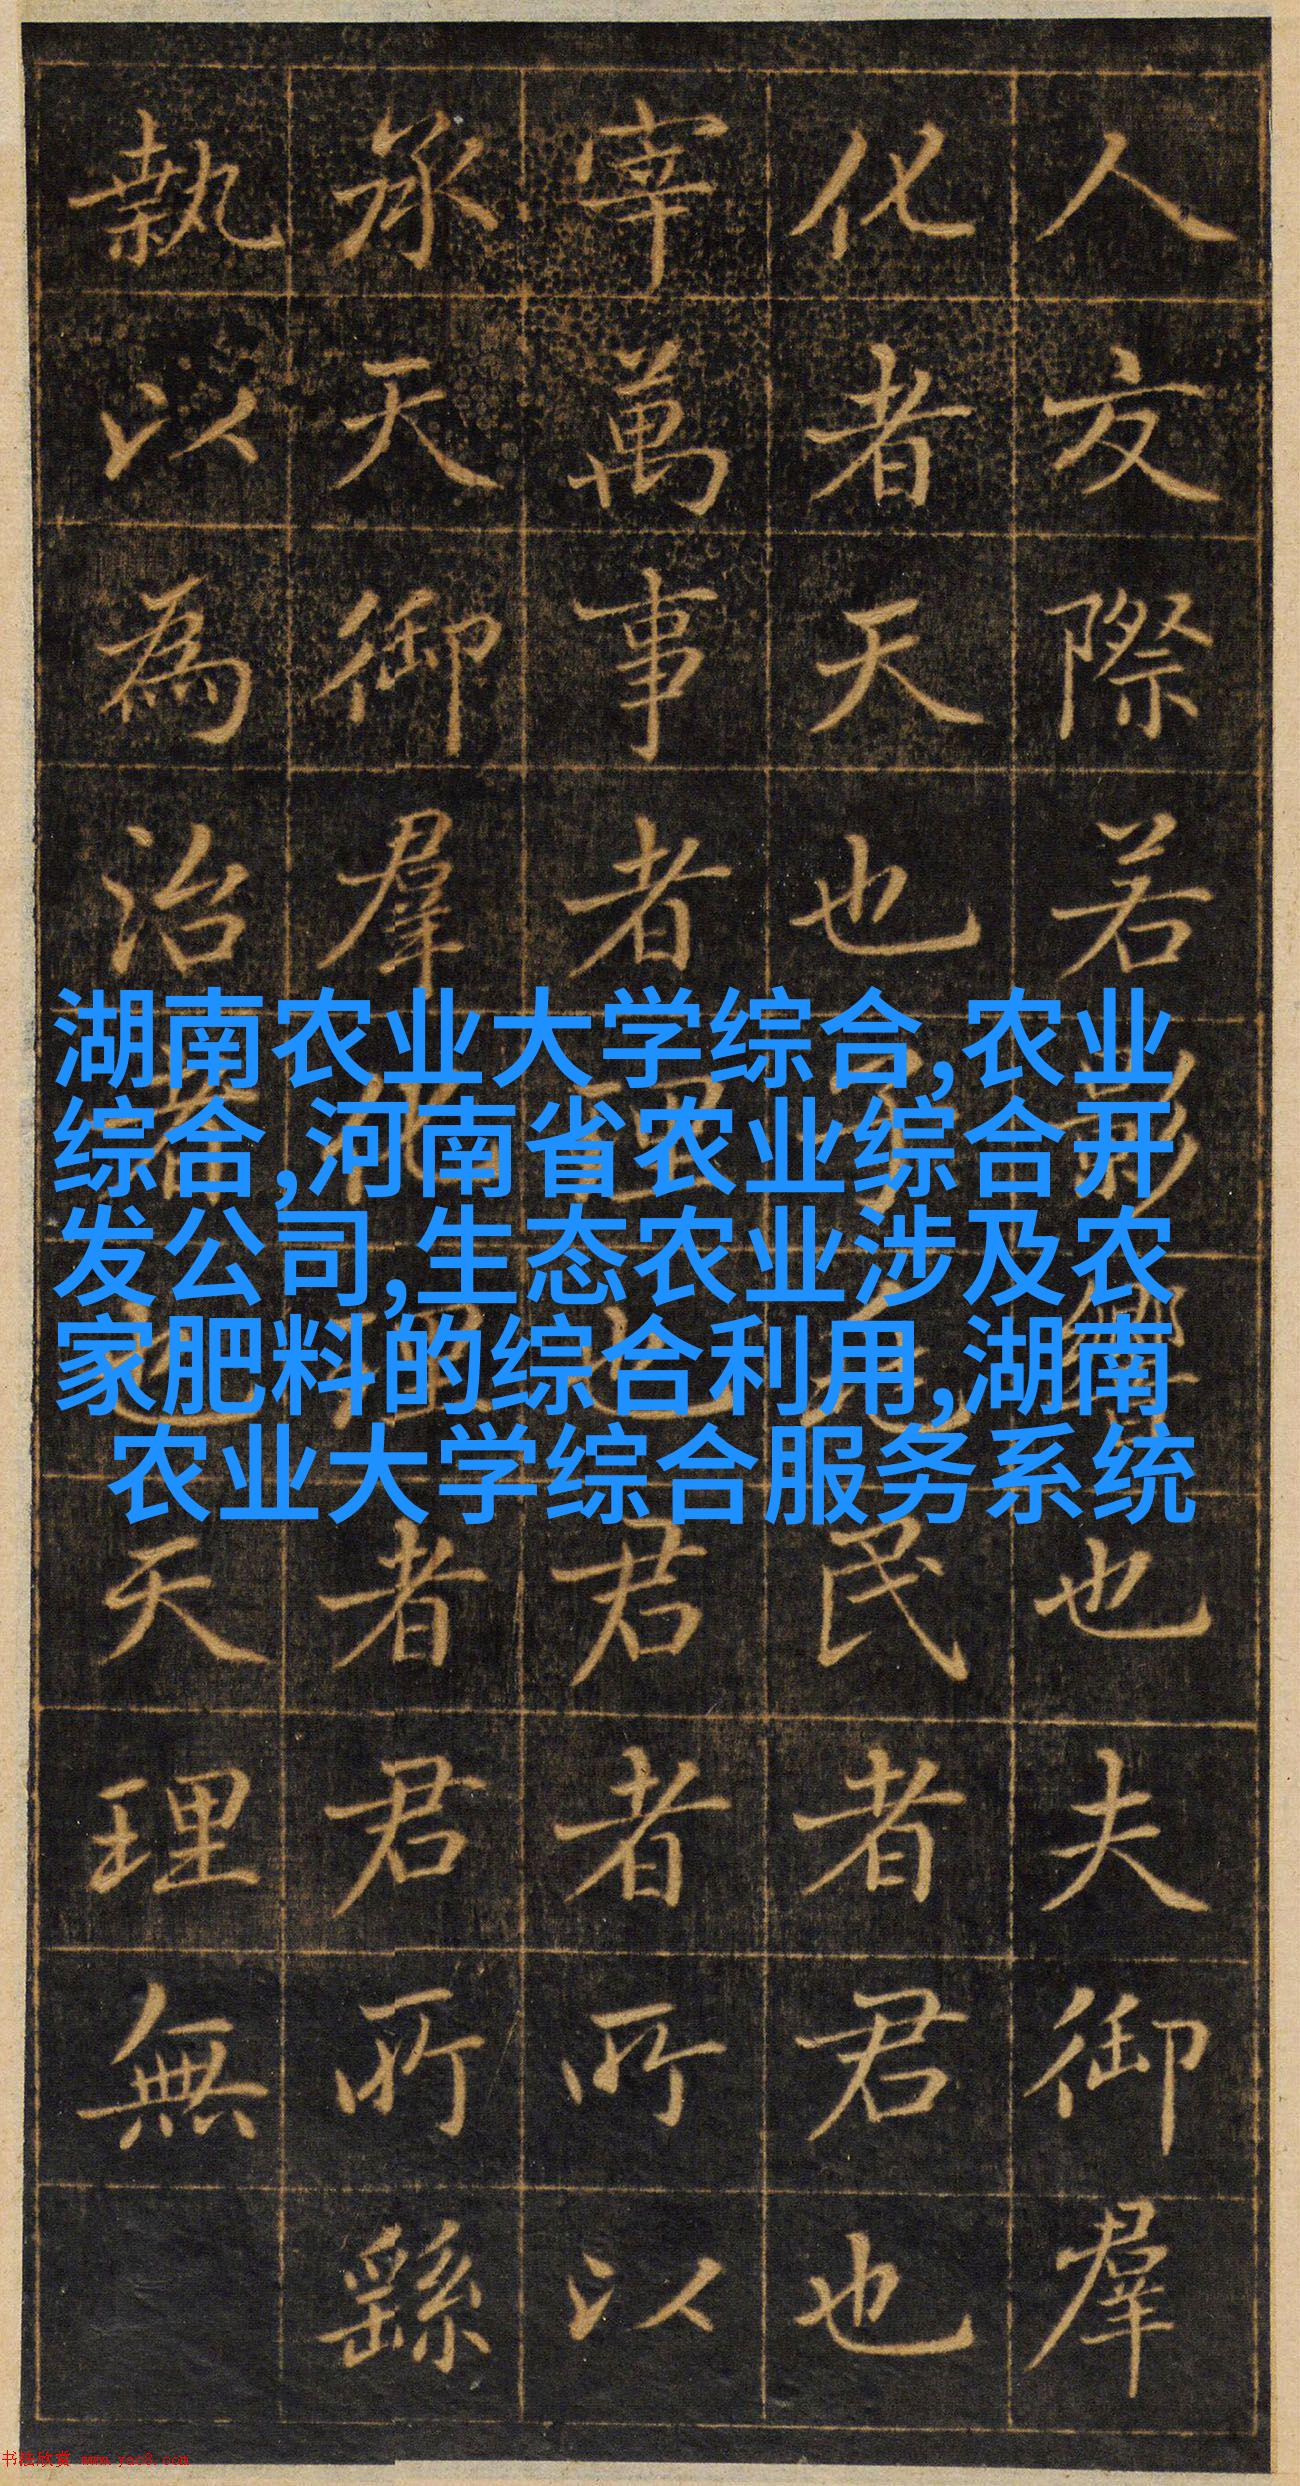 人友際若影也夫御羣
化者天也民者君也
宰萬事者也君者所以
承天御羣化理者君所繇
執以為治者也天理無
湖南农业大学综合,农业
综合,河南省农业综合开
发公司,生态农业涉及农
家肥料的综合利用,湖南
农业大学综合服务系统
书法欣赏 www.yac8.com